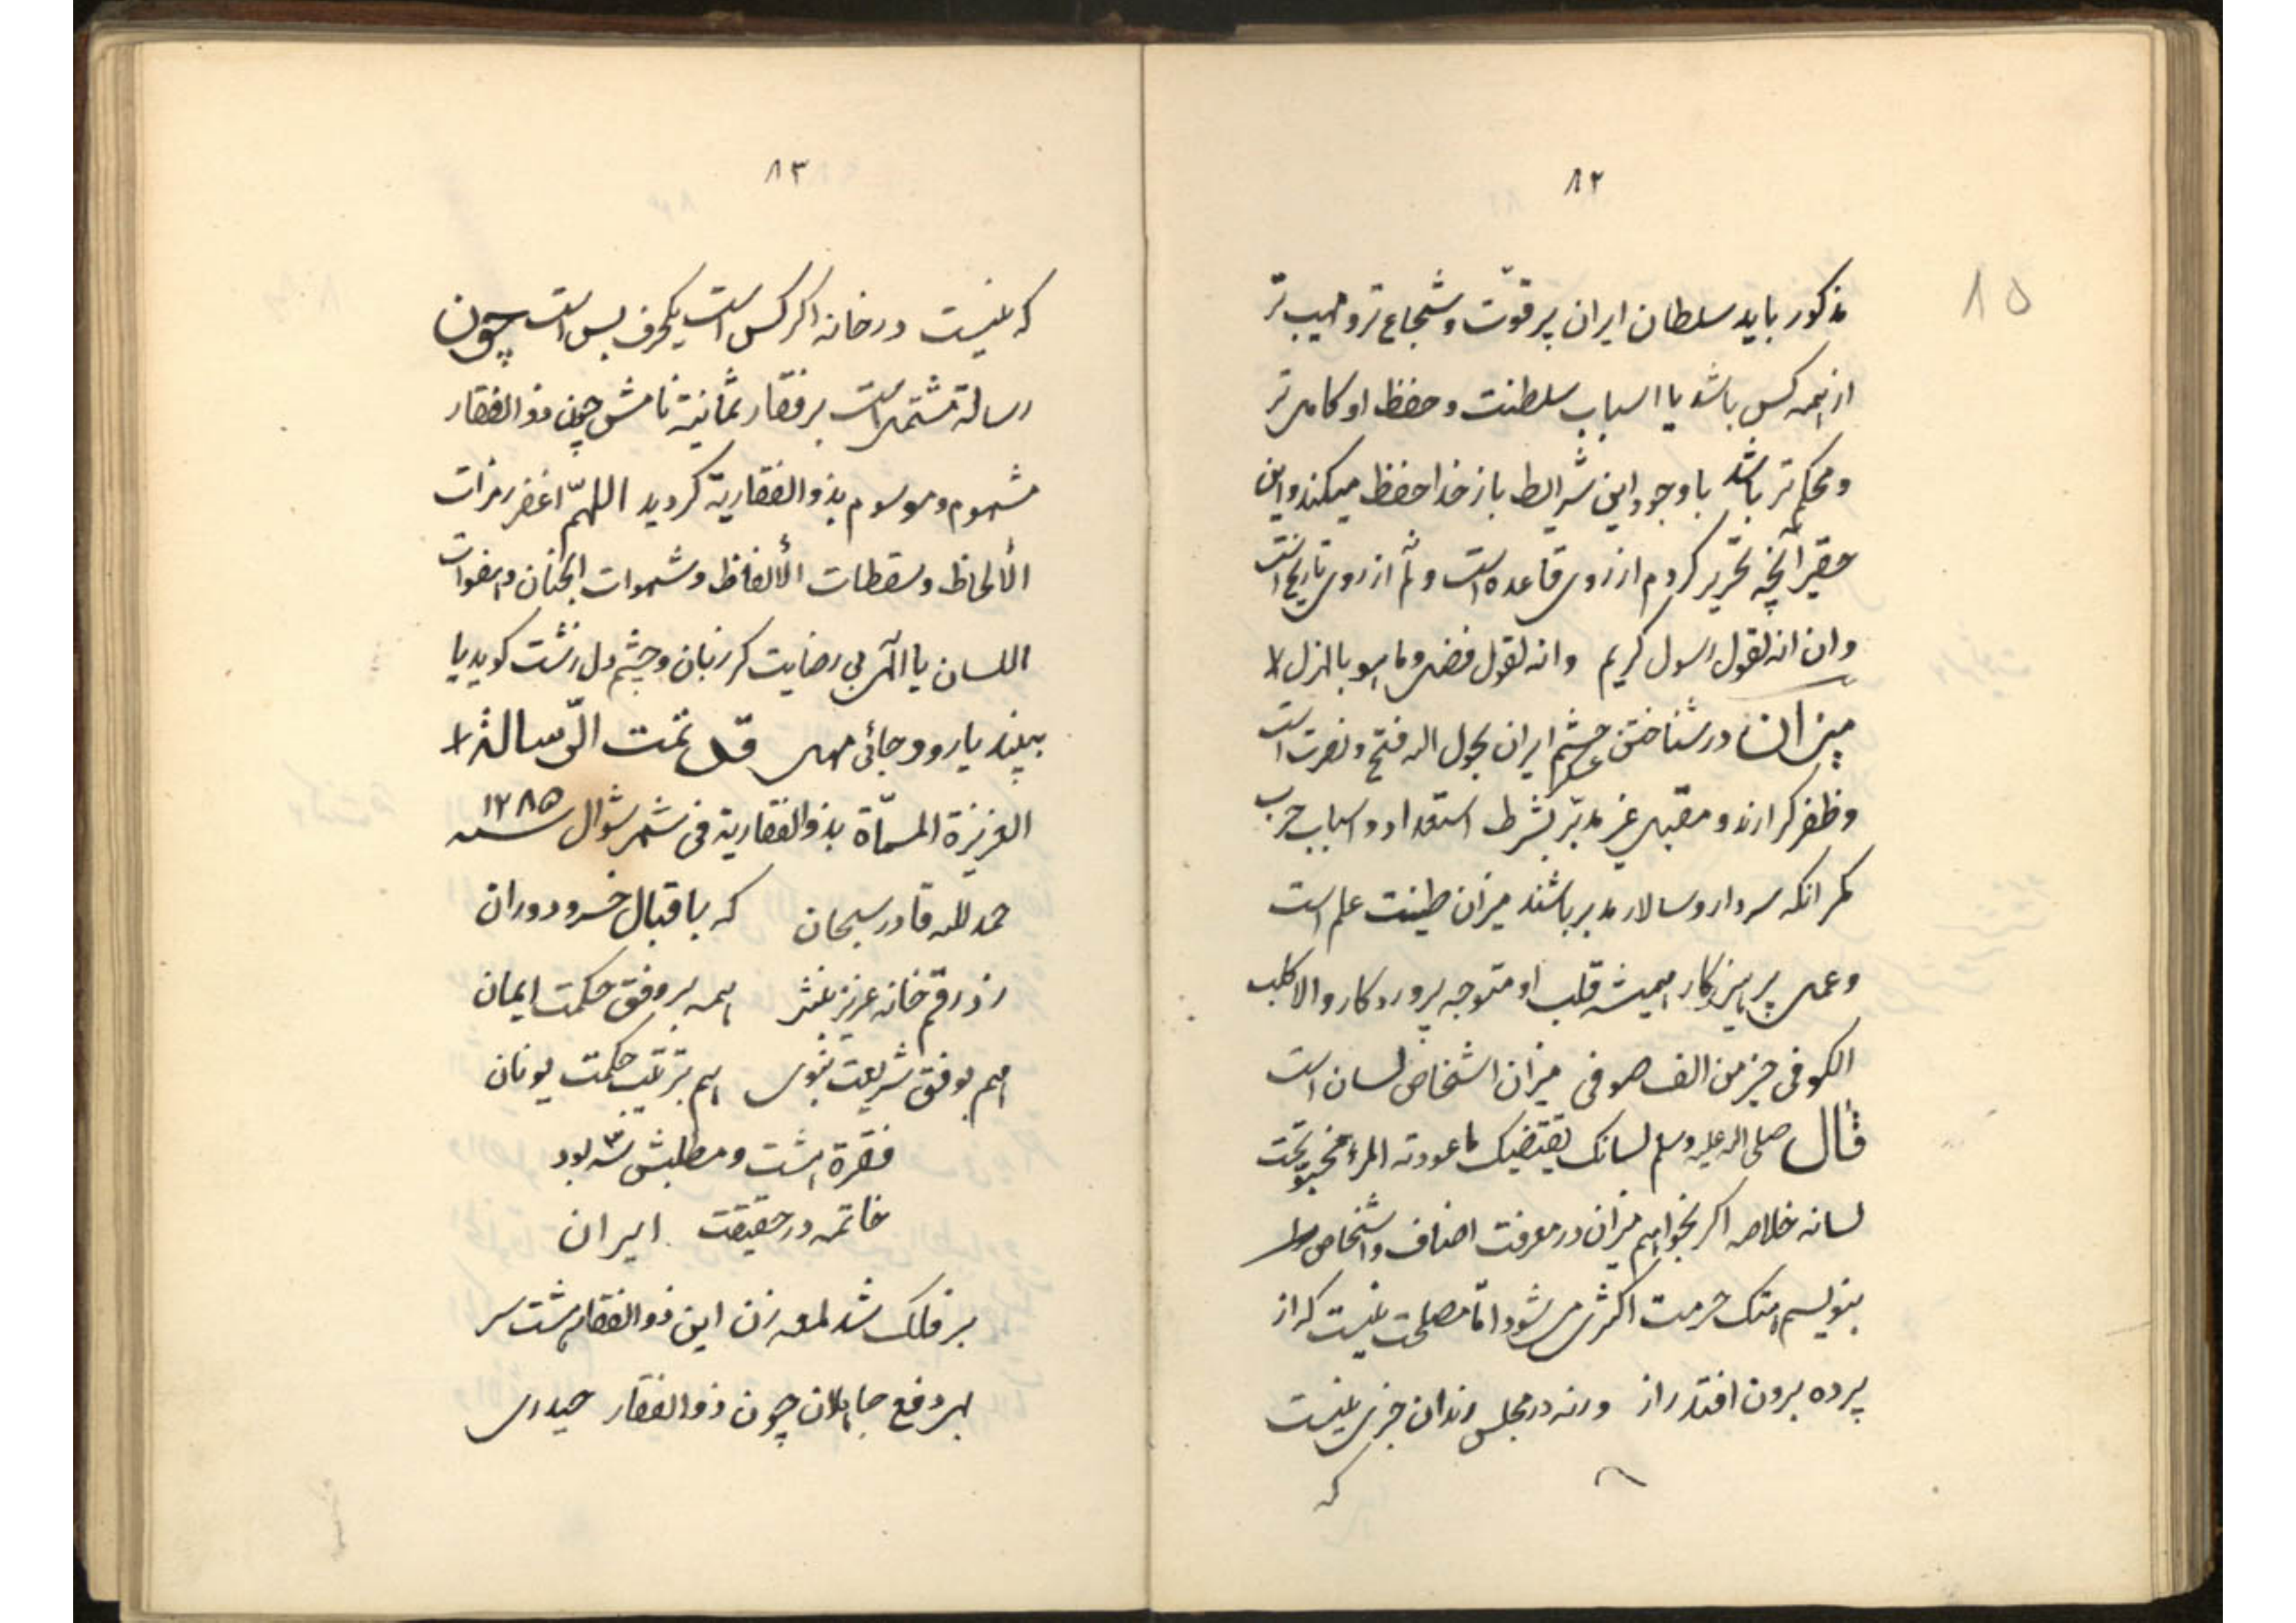 ۸۲
۸۵
مذکور باید سلطان ایران پر قوّت و شجاع تر و مهیب تر
از همه کس باشد یا اسباب سلطنت و حفظ او کامل تر
و محکم تر باشد با وجود این شرایط باز خدا حفظ میکند و این
حقیر آنچه تحریر کردم از روی قاعده است و نه از روی تاریخ است
و ان انه لقول رسول کریم و انه لقول فصل و ما هو بالهزل لا
میزان در شناختن چشم عسکر ایران بحول الله فتح و نصرت است
و ظفر کرارند و مقبل غیر مدبّر بشرط استعداد و اسباب حرب
مکر انکه سردار و سالار مدبر باشند میزان طینت علم است
و عمل پرهیزکار همیشه قلب او متوجه پروردکار و الا کلب
الکوفی خیر من الف صوفی میزان اشخاص لسان است
قال صلی الله علیه و سلم لسانک یقتضیک ما عودته المرء مخبو تحت
لسانه خلاصه اکر بخواهیم میزان در معرفت اصناف و اشخاص را
بنویسم هتک حرمت اکثری میشود امّا مصلحت نیست که از
پرده برون افتد راز ورنه در مجلس رندان خبری نیست
که
۸۳
که نیست در خانه اکر کس است یکحرف بس است چون
رسالة مشتمل است بر فقار ثمانیة نامش چون ذوالفقار
مشهوم و موسوم بذوالفقاریة کردید اللهمّ اغفر رمزات
الألحاظ و سقطات الألفاظ و شهوات الجنان و هفوات
اللسان یا الهی بی رضایت کر زبان و چشم دل زشت کوید یا
ببیند یا رود جائی مهل قد تمت الرّسالة
العزیزة المسمّاة بذوالفقاریة فی شهر شوال سنه ۱۲۸۵
حمد لله قادر سبحان که باقبال خسرو دوران
زد رقم خانه عزیز بنثر همه بر وفق حکمت ایمان
هم بوفق شریعت نبوی هم بترتیب حکمت یونان
فقرة هشت و مطلبش سه بود
خاتمه در حقیقت ایران
بر فلک شد لمعه زن این ذوالفقار هشت سر
بهر دفع جاهلان چون ذوالفقار حیدری